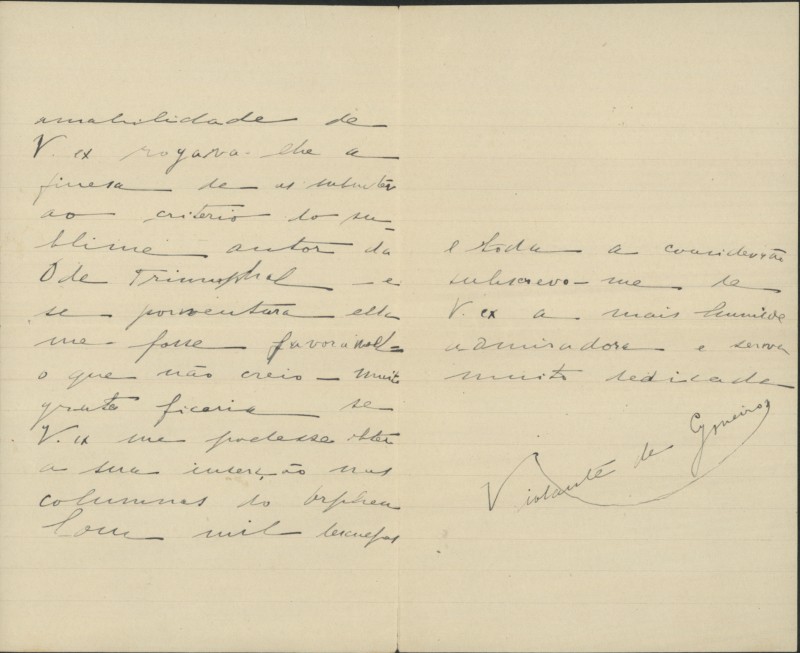 amabilidade de
V. ex rogava-lhe a
finesa de os submeter
ao criterio do su-
blime autor da
Ode Triumphal – e
se porventura ella
me fosse favoravel –
o que não creio – muito
grata ficaria se
V. ex me podesse obter
a sua inserção nas
columnas do Orpheu
Com mil desculpas
e toda a consideração
subscrevo-me de
V. ex a mais humilde
admiradora e serva
muito dedicada
Violante de Cysneiros